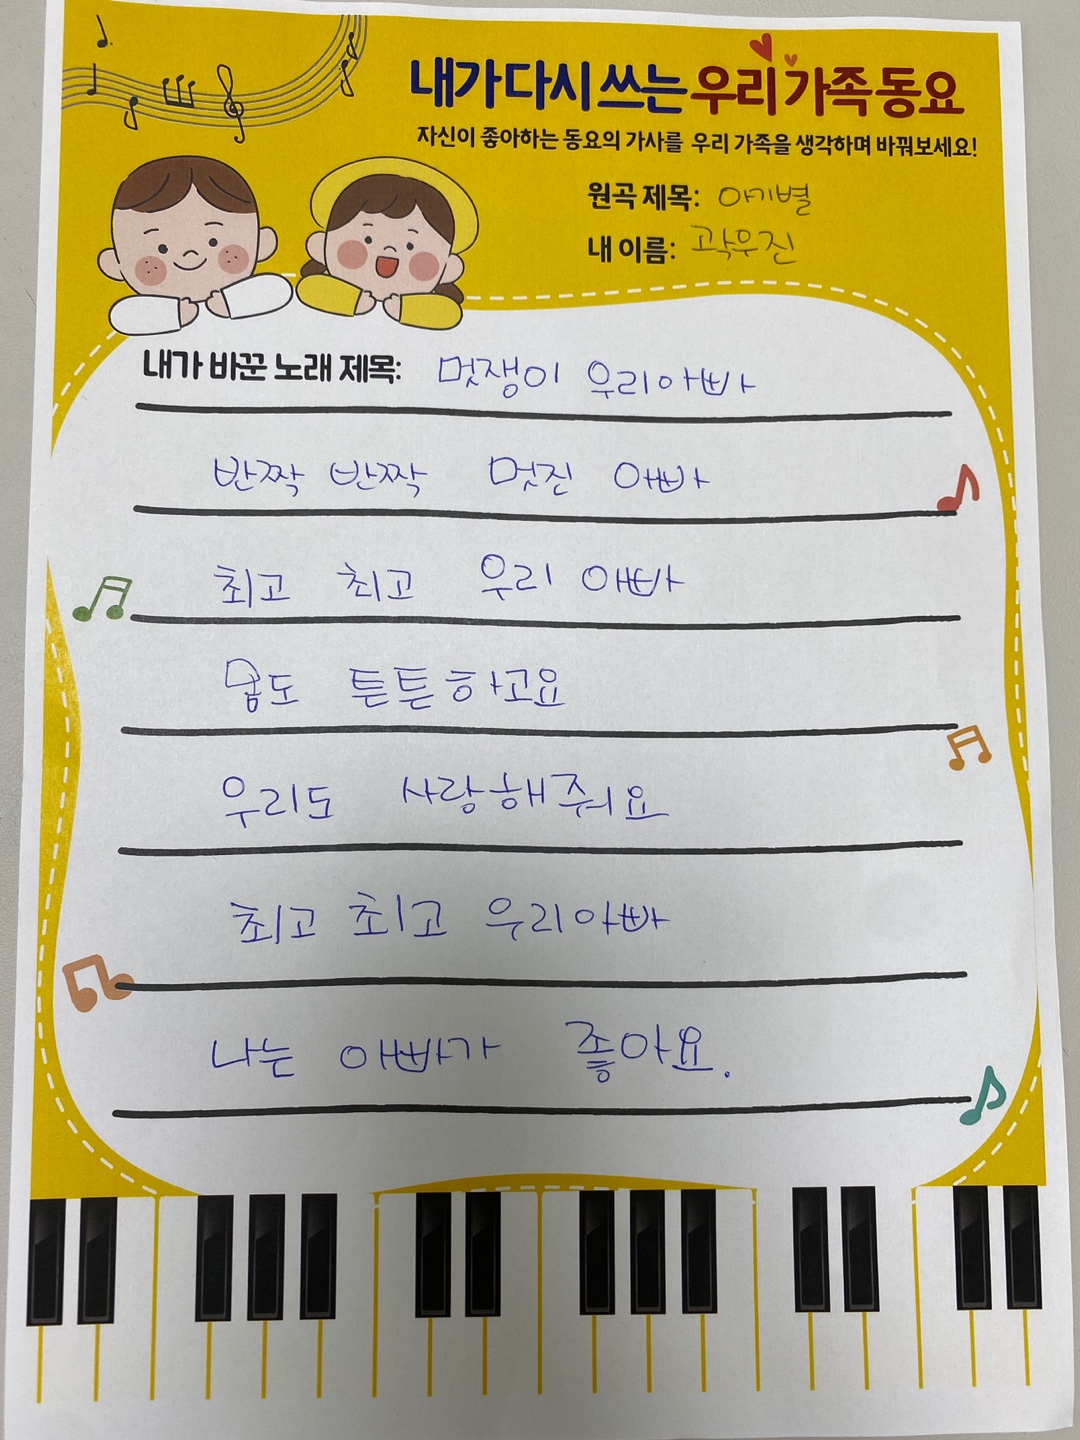 내가 다시 쓰는 우리 가족 동요
자신이 좋아하는 동요의 가사를 우리 가족을 생각하며 바꿔보세요!
원곡 제목: 아기별
내 이름: 곽우진
내가 바꾼 노래 제목: 멋쟁이 우리아빠
반짝 반짝 멋진 아빠
최고 최고 우리 아빠
몸도 튼튼하고요
우리도 사랑해줘요
최고 최고 우리아빠
나는 아빠가 좋아요.